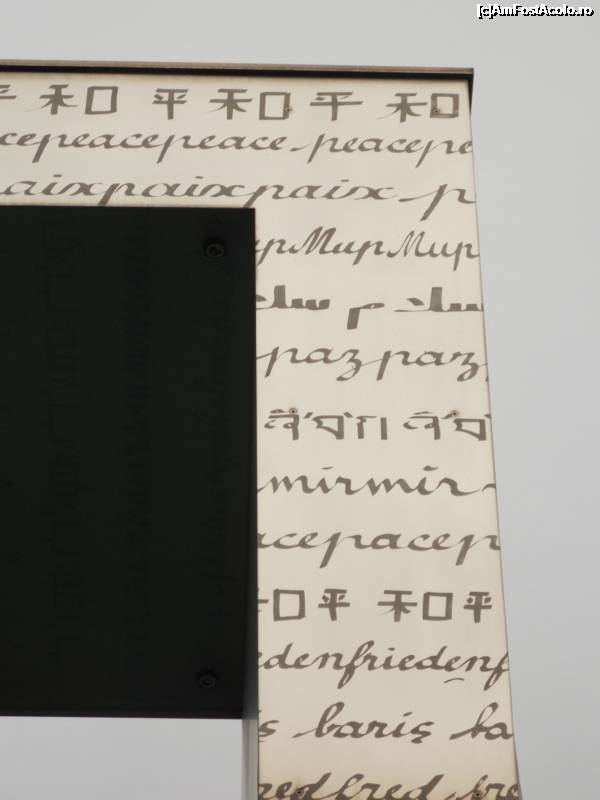 [c]AmFostAcolo.ro
和 平 和 平 和
cepeacepeace peacepe
aixpaixpaix p
ирМирМир
سلام سلا
pazpaz
mirmir
acepacep
和平 和平
edenfriedenf
ş bariş ba
redfred fre